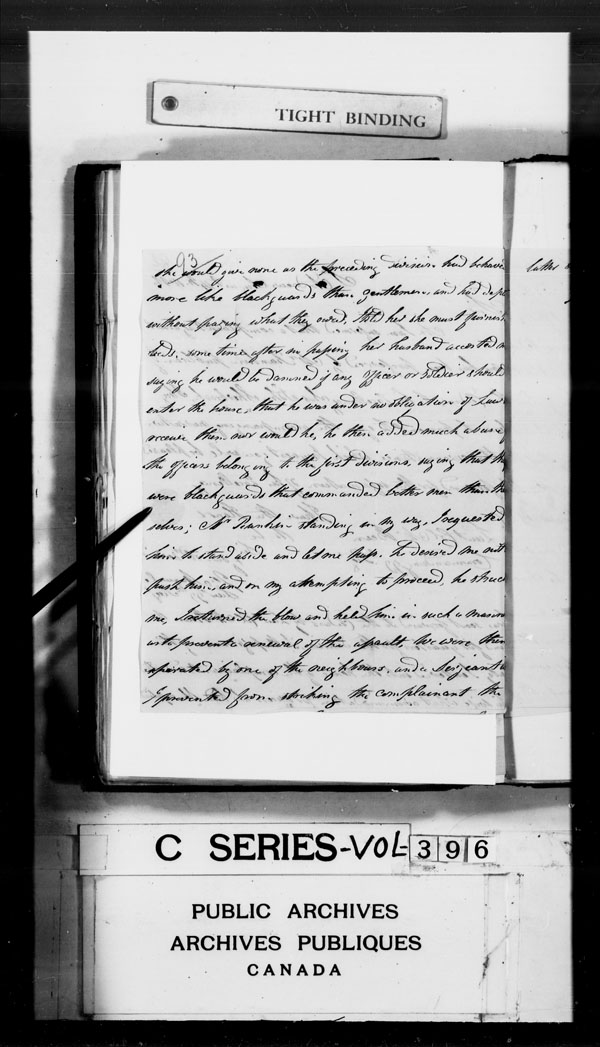 TIGHT BINDING
93
she would give none as the preceding division had behave
more like blackguards than gentlemen, and had dep
without paying what they owed. told her she must furnish
beds, some time after in passing her husband accosted m
saying he would be damned if any officer or soldier should
enter the house, that he was under no obligation of Law
receive them nor would he, he then added much abuse of
the officers belonging to the first divisions, saying that the
were blackguards that commanded better men than the
selves; Mr Rankin standing in my way, I requested
him to stand aside and let me pass. he desired me not
push him, and on my attempting to proceed, he struc
me, I returned the blow and held him in such a manne
as to prevent a renewal of the assault. We were then
separated by one of the neighbours, and a Sergeant
I prevented from striking the complainant the
C SERIES-VOL-396
PUBLIC ARCHIVES
ARCHIVES PUBLIQUES
CANADA